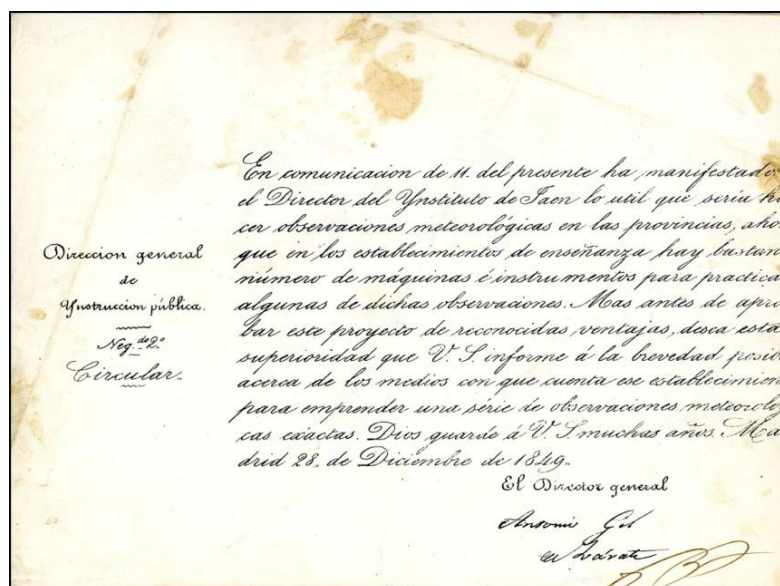 Direccion general
de
Ynstruccion pública.
Neg.do 2.º
Circular.
En comunicacion de 11. del presente ha manifestado
el Director del Ynstituto de Jaen lo util que seria ha
cer observaciones meteorológicas en las provincias, aho
que en los establecimientos de enseñanza hay bastan
número de máquinas é instrumentos para practica
algunas de dichas observaciones. Mas antes de apro
bar este proyecto de reconocidas ventajas, desea esta
superioridad que V. S. informe á la brevedad posib
acerca de los medios con que cuenta ese establecimien
para emprender una série de observaciones meteoroló
cas exactas. Dios guarde á V. S. muchas años. Ma
drid 28. de Diciembre de 1849.
El Director general
Antonio Gil
de Zárate